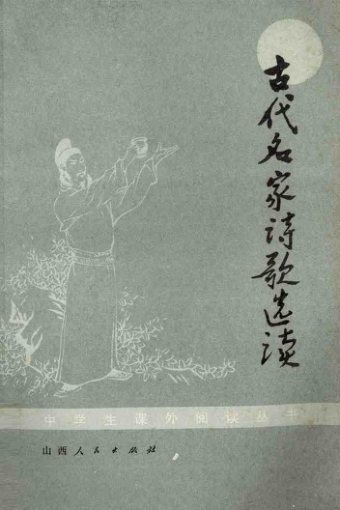 古代名家诗歌选读
中学生课外阅读丛书
山西人民出版社